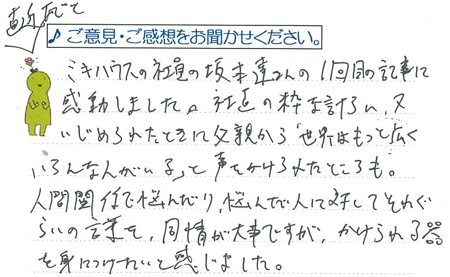 ♪ ご意見・ご感想をお聞かせください。
ミキハウスの社員の坂本達さんの1回目の記事に
感動しました。社長の粋な計らい、又
いじめられたときに父親から"世界はもっと広く
いろんな人がいる"と声をかけられたところも。
人間関係で悩んだり、悩んだ人に対してそれぐ
らいの言葉を、同情が大事ですが、かけられる器
を身につけたいと感じました。